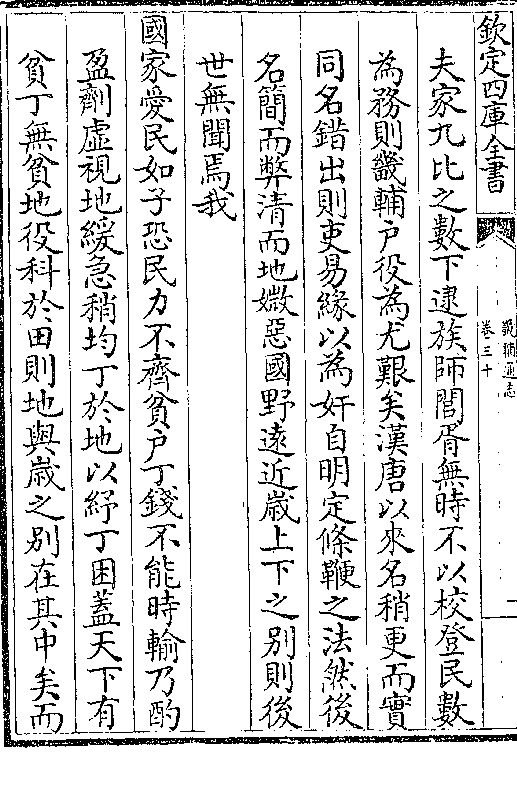 欽定四庫全書
畿輔通志
卷三十
夫家九比之數下逮族師閭胥無時不以校登民數
為務則畿輔户役為尤艱矣漢唐以來名稍更而實
同名錯出則吏易緣以為奸自明定條鞭之法然後
名簡而弊清而地媺惡國野遠近歳上下之别則後
世無聞焉我
國家愛民如子恐民力不齊貧户丁錢不能時輸乃酌
盈劑虛視地緩急稍均丁於地以紓丁困蓋天下有
貧丁無貧地役科於田則地與歳之别在其中矣而